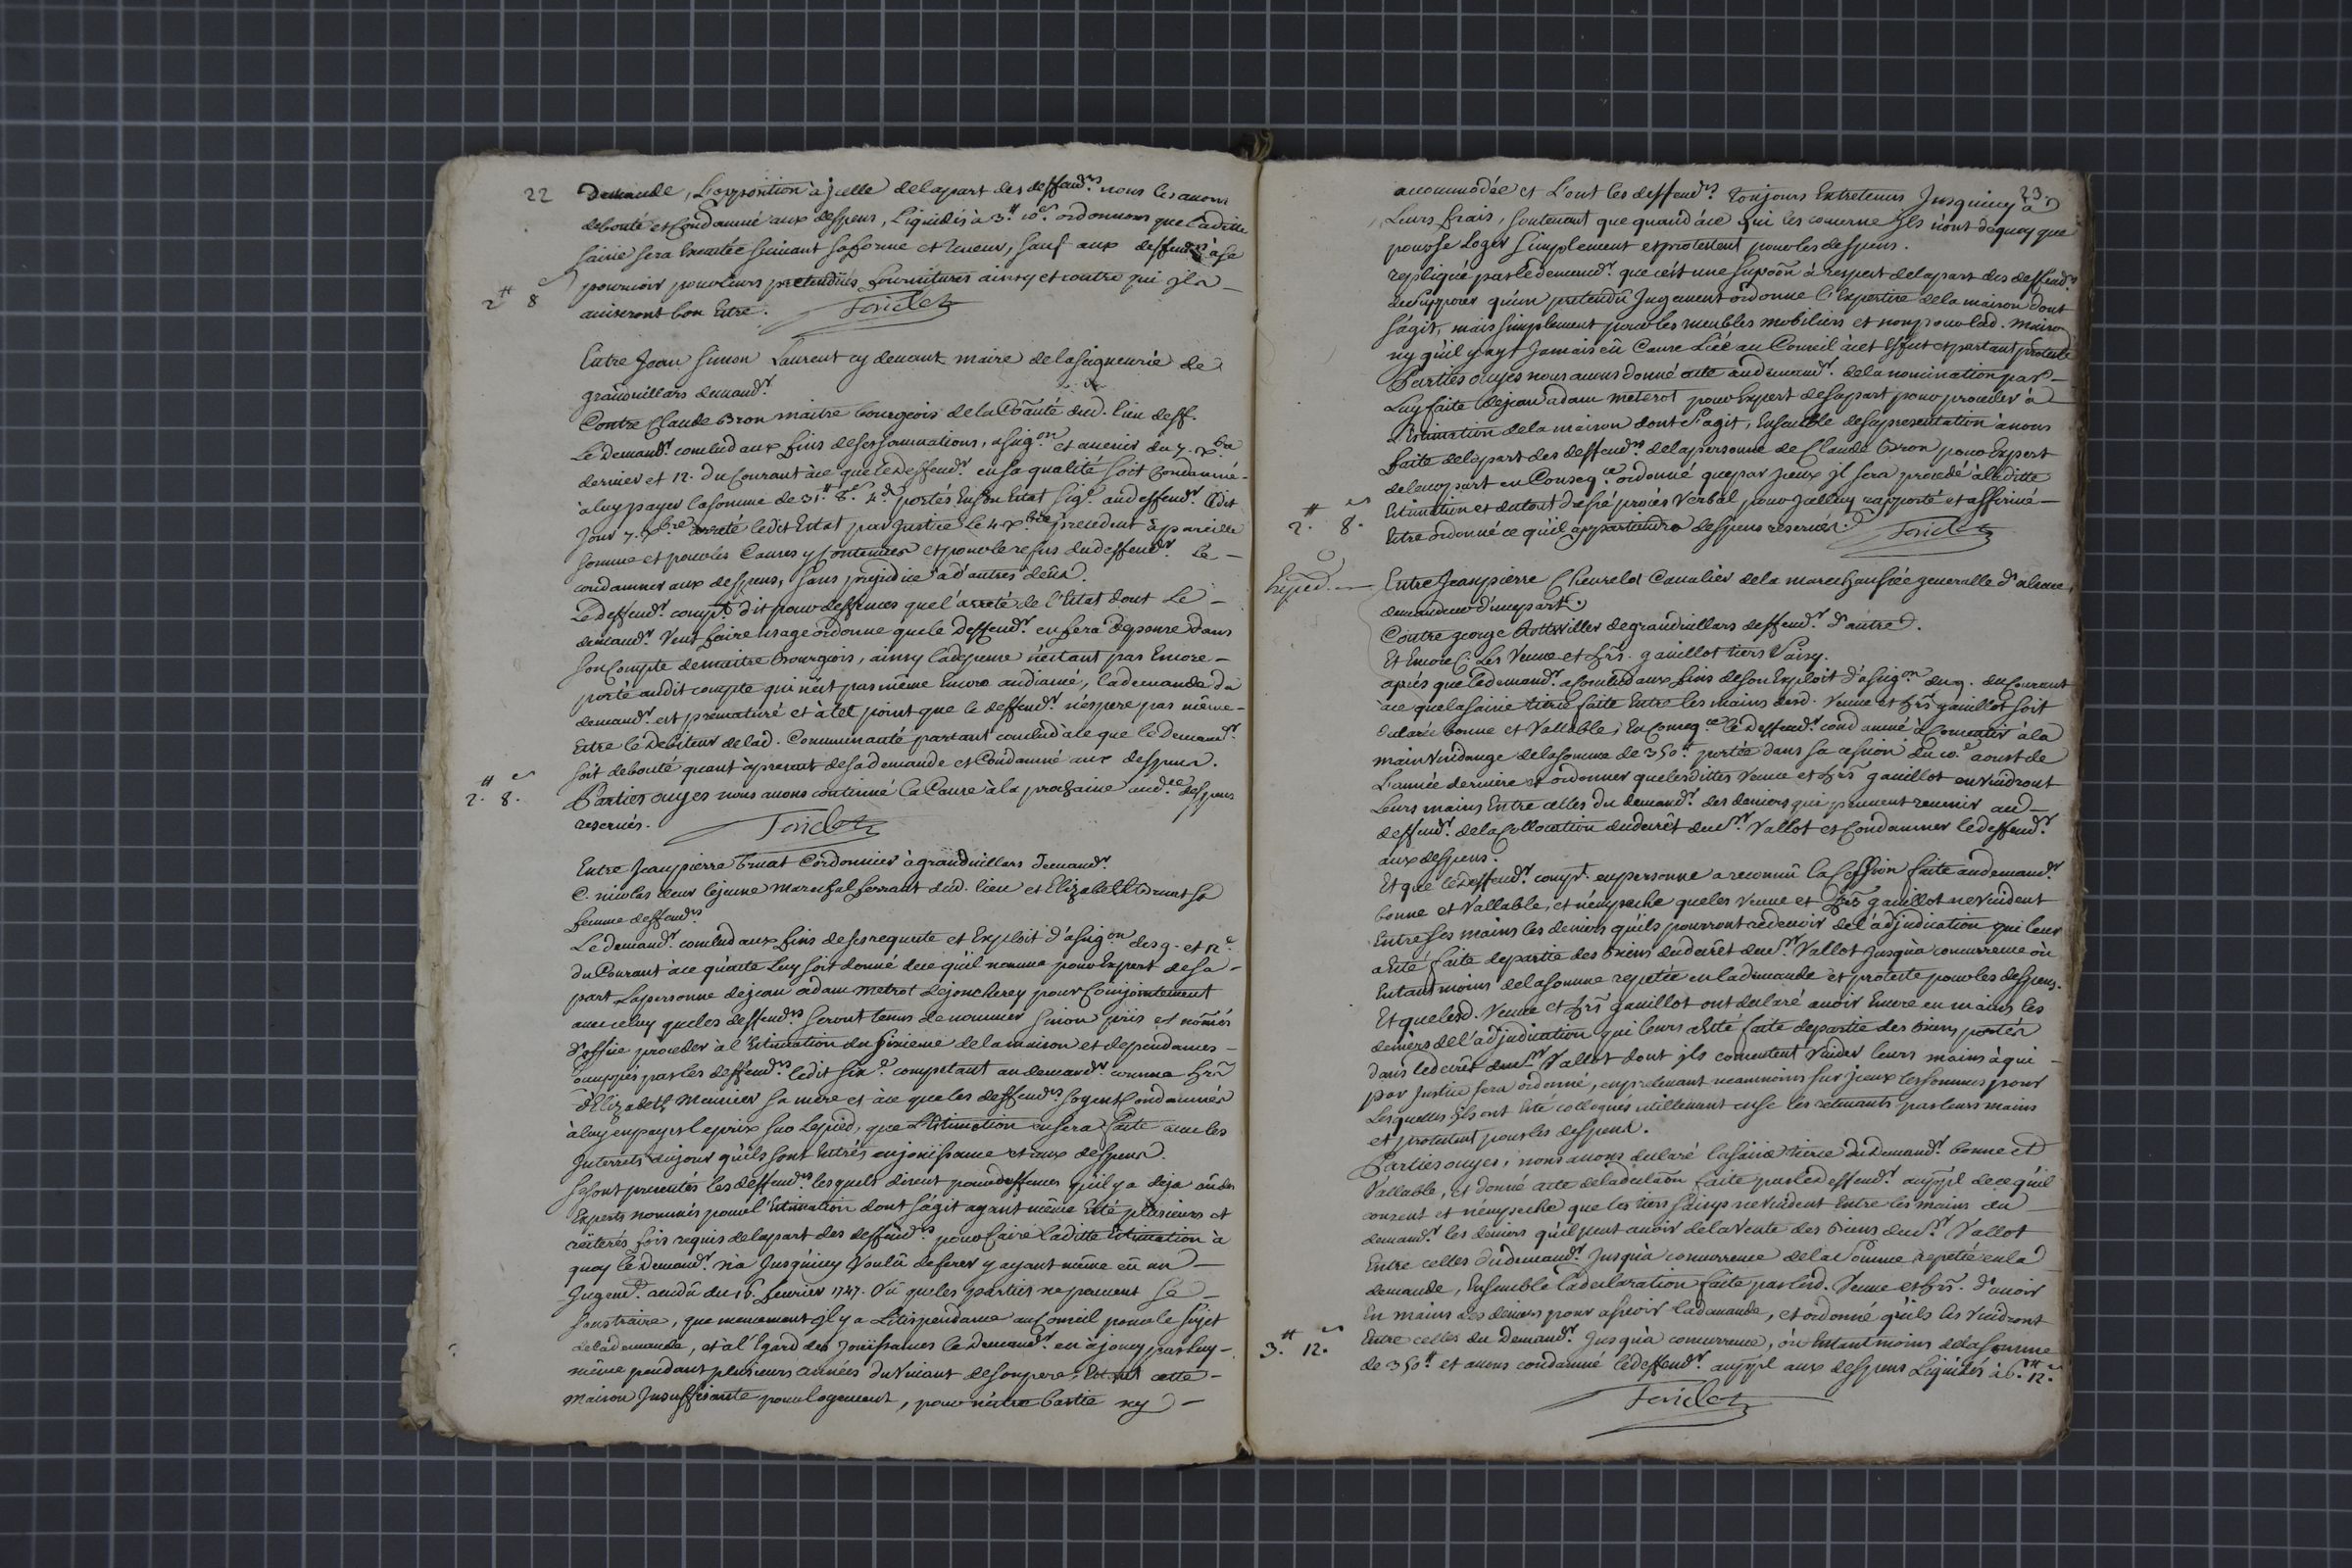 22
Demande, L'opposition à Jcelle delapart des deffend.rs nous les avons
debouté et Condamné aux despens, Liquidés à 3.# 10.s ordonnons que laditte
saisie sera Executée suivant sa forme et teneur, sauf aux deffend.rs à se
pourvoir pour leurs pretendües fournitures ainsy et contre qui jls
aviseront bon Estre.
2.# 8.s
Entre Jean Simon Laurent cy devant maire de la seigneurie de
grandvillars demand.r
Contre Claude Bron maitre bourgeois de la Cõauté dud. lieu deff.
Le Demand.r conclud aux fins de ses sommations, assig.on et avenir du 7. Xbre
dernier et 12. du Courant à ce que le Deffend.r en sa qualité soit Condamné
à luy payer la somme de 31.# 8.s 4.d portés En son Estat sig.é aud deffend.r ledit
Jour 7. Xbre arreté ledit Estat par Justice le 4. Xbre precedent à pareille
somme et pour les Causes y Contenues et pour le refus dud deffend.r le
condamner aux despens, sans prejudice à d'autres deûs.
Le deffend.r comp.t dit pour deffences que l'arreté de l'Estat dont Le
demand.r veut faire usage ordonne que le Deffend.r en fera depense dans
son Compte de maitre Bourgeois, ainsy la depense n'estant pas Encore
porté audit compte qui n'est pas même Encore audiancé, la demande du
demand.r est prematuré et à tel point que le deffend.r n'espere pas même
Estre le Debiteur de lad. Communauté partant conclud à ce que le Demand.r
soit debouté quant à present de sa demande et Condamné aux despens.
2.# 8.s
Parties ouyes nous avons continué la Cause à la prochaine aud.ce despens
reservés.
Entre Jean pierre Bruat Cordonnier à grandvillars Demand.r
C. nicolas deur lejeune Marechal ferrant dud. lieu et Elizabeth Bruat sa
femme deffend.rs
Le demand.r conclud aux fins de ses requete et Exploit d'assig.on des 9. et 12.e
du Courant à ce qu'acte Luy soit donné de ce qu'il nomme pour Expert de sa
part La personne de jean adam metrot de joncherey pour Conjointement
avec celuy que les deffend.rs seront tenus de nommer sinon pris et nõmés
d'office proceder à l'Estimation du sixieme de la maison et dependances
occuppés par les deffend.rs ledit six.e competant au demand.r comme hrs
d'Elizabeth Meunier sa mere et à ce que les deffend.rs soyent Condamnés
à luy en payer le prix sur le pied, que L'Estimation en sera faite avec les
Interrets du jour qu'ils sont Entrés en joüissance et aux despens.
se sont presentés les deffend.rs lesquels disent pour deffences qu'il y a deja eû des
Experts nommés pour l'Estimation dont s'agit ayant même Esté plusieurs et
reïterés fois requis delapart des deffend.rs pour faire laditte Estimation à
quoy le Demand.r n'a Jusqu'icy voulû deferer y ayant même eû un
Jugem.t rendû du 16. fevrier 1747. Vû que les parties ne peuvent se
soustraire, que mememant il y a Litispendance au Conseil pour le sujet
de la demande, et à l'Egard des Jouissances le Demand.r en à joüy par luy
même pendant plusieurs années du vivant de son pere, cette
Maison Insuffisante pour logement, pour n'estre bastie ny
23.
accommodée et L'ont les deffend.rs toujours Entretenus Jusqu'icy à
Leurs frais, soutenant que quand à ce qui les concerne Jls n'ont de quoy que
pour se Loger simplement et protestent pour les despens.
repliqué par le demand.r que c'est une supoõn à respect delapart des deffend.rs
de supposer qu'un pretendû Jugement ordonne l'Expertise de la maison dont
s'agit, mais simplement pour les meubles mobiliers et non pour lad. Maison
ny qu'il y ayt Jamais eû Cause Liée au Conseil à cet Effect et partant proteste
Parties ouyes nous avons donné acte au demand.r de la nomination par
Luy faite de jean adam meterot pour Expert de sa part pour proceder à
L'Estimation de la maison dont s'agit, Ensemble de sa presentation à nous
faite delapart des deffend.rs de la personne de Claude Bron pour Expert
de leur part en Conseq.ce ordonné que par Jceux jl sera procedé à laditte
Estimation et du tout dressé procés Verbal pour Jcelluy rapporté et affirmé
Estre ordonné ce qu'il appartiendra despens reservés.
2.# 8.s
Exped.
Entre Jean pierre Cheurelot Cavalier de la marechaussée generalle d'alsace,
demandeur d'une part.
Contre george Rottwiller de grandvillars deffend.r d'autre.
Et Encore C. Les Veuve et hrs. gavillot tiers saisy.
aprés que le demand.r a conclud aux fins de son Exploit d'assig.on du 9. du Courant
à ce que la saisie tierce faite Entre les mains desd. Veuve et hrs gavillot soit
declarée bonne et Vallable, En Conseq.ce le Deffend.r condamné à Consentir à la
main Vuidange de la somme de 350.# portée dans sa cession du 10.e aoust de
L'année derniere et ordonner que lesdittes Veuve et hrs gavillot en vuideront
Leurs mains Entre celles du demand.r des deniers qui peuvent revenir aud
deffend.r de la Collocation du decrêt du S.r Vallot et Condamner le deffend.r
aux despens.
Et que le deffend.r comp.t en personne a reconnû la Cession faite au demand.r
bonne et Vallable, et n'empeche que les Veuve et hrs gavillot ne vuident
Entre ses mains les deniers qu'ils pourront redevoir de l'adjudication qui leur
a Esté faite de partie des Biens du decrêt du S.r Vallot Jusqu'à concurrence où
Entant moins de la somme repetée en la demande et proteste pour les despens.
Et que lesd. Veuve et hrs gavillot ont declaré avoir Encore en mains les
deniers de l'adjudication qui leurs a Esté faite de partie des Biens portés
dans le decrêt du S.r Vallot dont jls consentent vuider leurs mains à qui
par Justice sera ordonné, en prelevant neanmoins sur jceux les sommes pour
Lesquelles jls ont Esté colloqués utillement en se les retenants par leurs mains
et protestent pour les despens.
Parties ouyes, nous avons declaré la saisie tierce du Demand.r bonne et
Vallable, et donné acte de la declaõn faite par le deffend.r aupp.l de ce qu'il
consent et n'empeche que les tiers saisys ne vuident Entre les mains du
demand.r les deniers qu'il peut avoir de la vente des Biens du S.r Vallot
Entre celles du demand.r Jusqu'à concurrence de la somme repetée en la
demande, Ensemble la declaration faite par lesd. Veuve et hrs. d'avoir
En mains des deniers pour asseoir la demande, et ordonné qu'ils les vuideront
Entre celles du Demand.r Jusqu'à concurrence, où Entant moins de la somme
de 350.# et avons condamné le deffend.r aupp.l aux despens Liquidés à 6.# 12.s
3.# 12.s